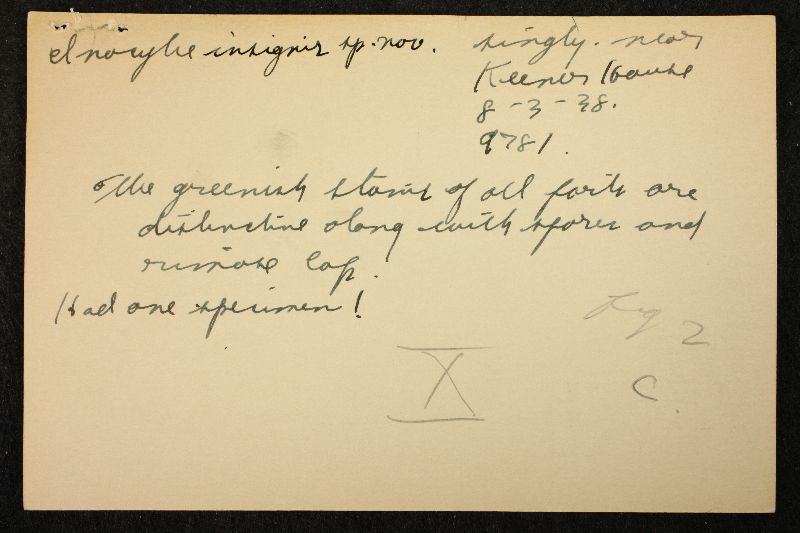 Inocybe insignis sp. nov.
singly. near
Keener House
8-3-38.
9781.
The greenish stains of all parts are
distinctive along with spores and
rimose cap.
Had one specimen!
Fig 2
C.
X